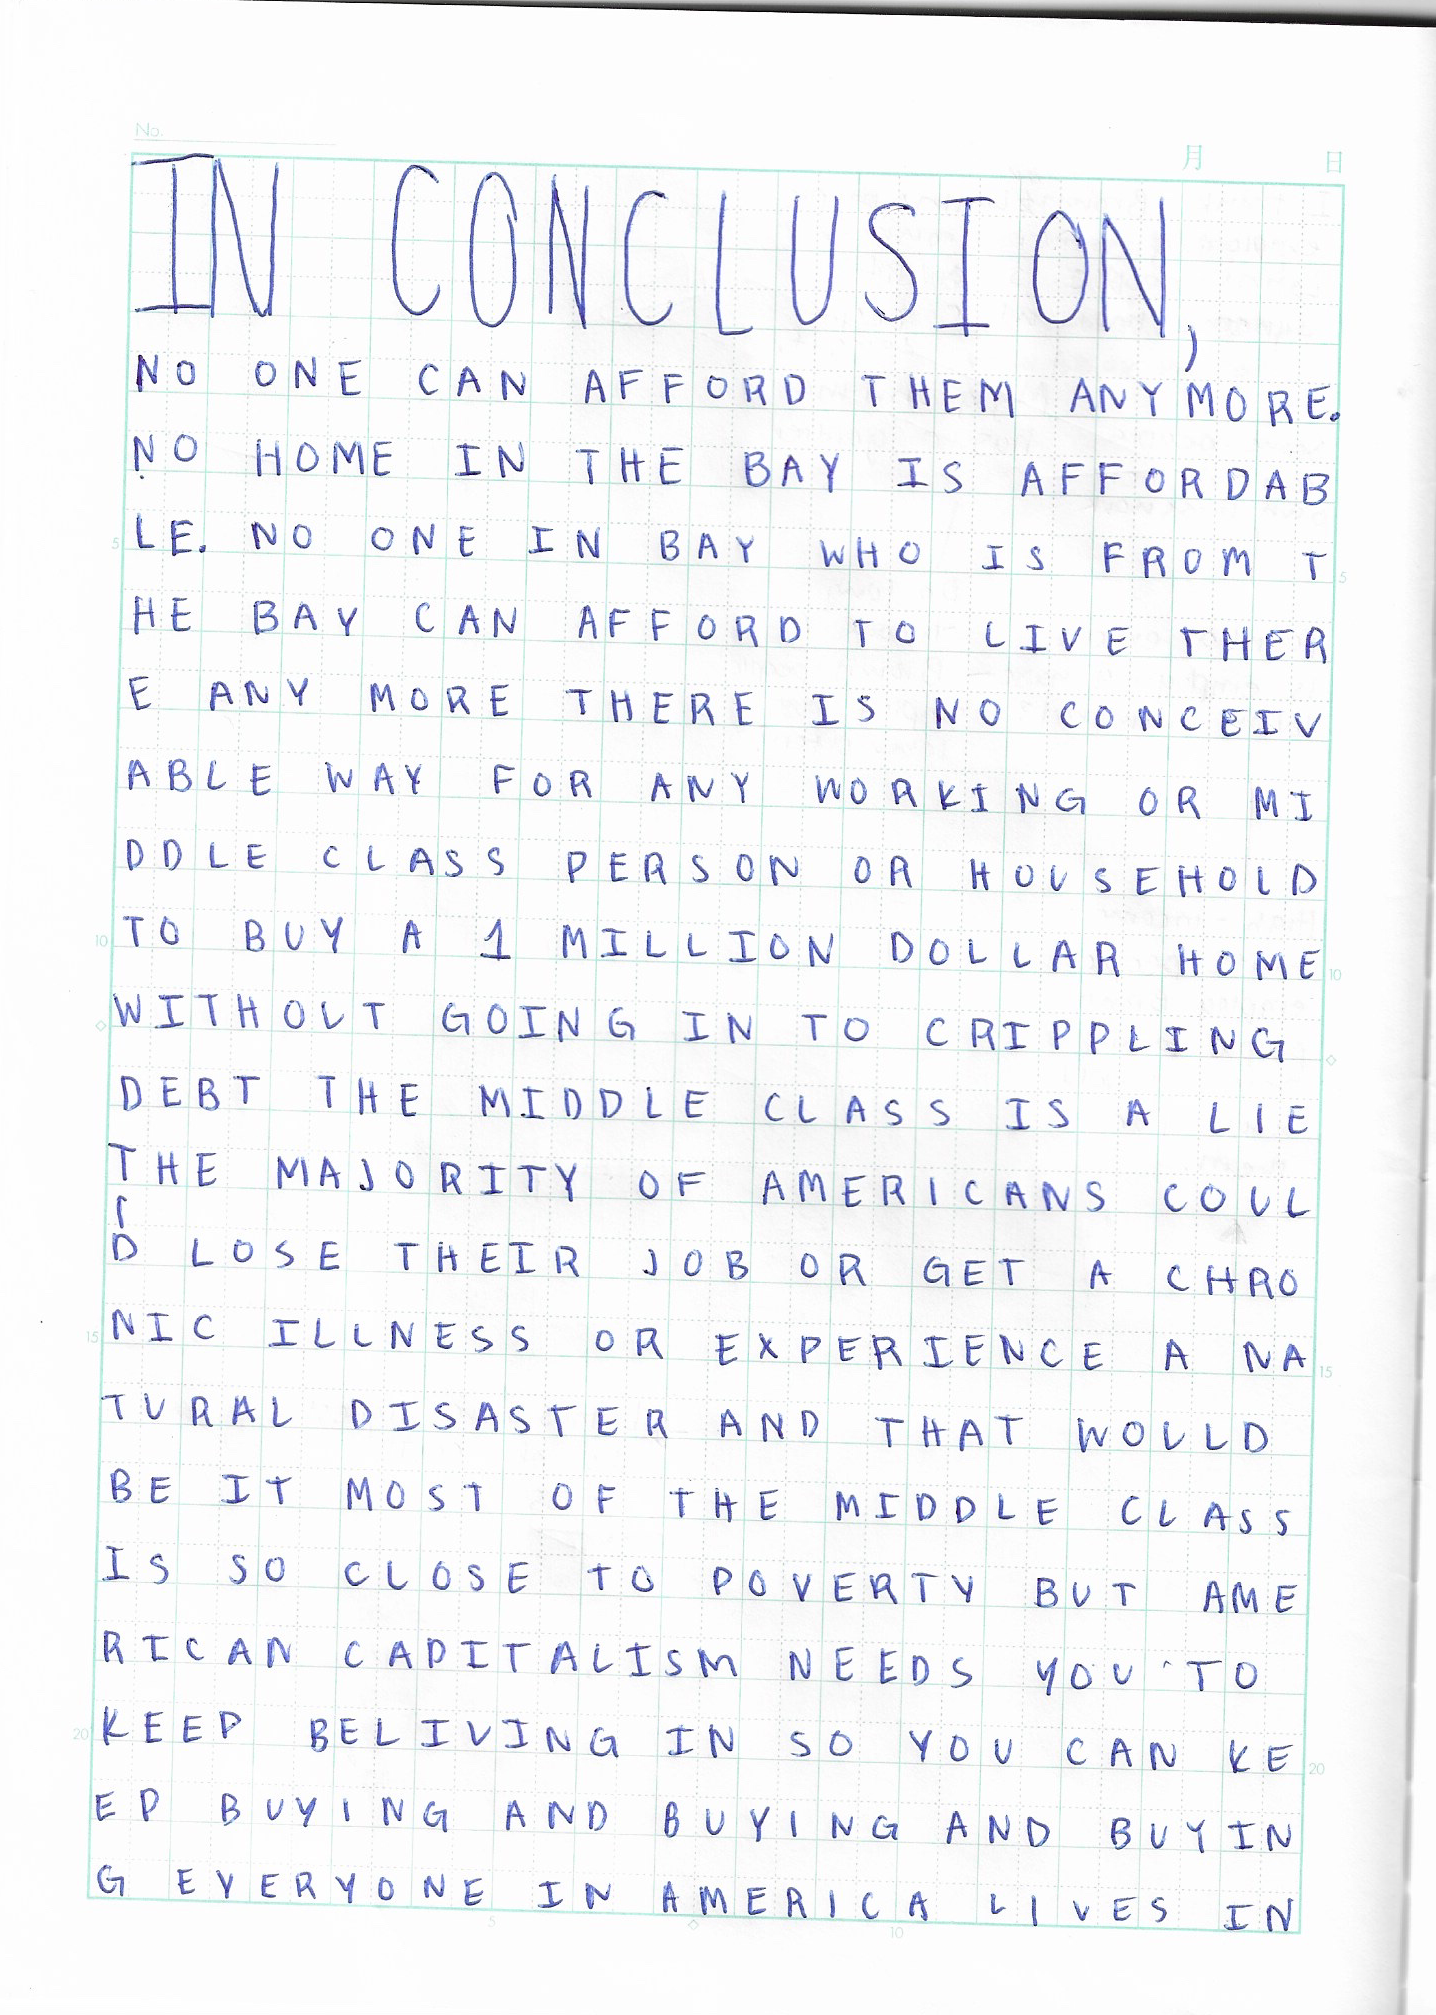 No.
月 日
IN CONCLUSION,
NO ONE CAN AFFORD THEM ANYMORE.
NO HOME IN THE BAY IS AFFORDAB
5 LE. NO ONE IN BAY WHO IS FROM T 5
HE BAY CAN AFFORD TO LIVE THER
E ANY MORE THERE IS NO CONCEIV
ABLE WAY FOR ANY WORKING OR MI
DDLE CLASS PERSON OR HOUSEHOLD
10 TO BUY A 1 MILLION DOLLAR HOME 10
WITHOUT GOING IN TO CRIPPLING
DEBT THE MIDDLE CLASS IS A LIE
THE MAJORITY OF AMERICANS COUL
D LOSE THEIR JOB OR GET A CHRO
15 NIC ILLNESS OR EXPERIENCE A NA 15
TURAL DISASTER AND THAT WOULD
BE IT MOST OF THE MIDDLE CLASS
IS SO CLOSE TO POVERTY BUT AME
RICAN CAPITALISM NEEDS YOU TO
20 KEEP BELIVING IN SO YOU CAN KE 20
EP BUYING AND BUYING AND BUYIN
G EVERYONE IN AMERICA LIVES IN
5 10